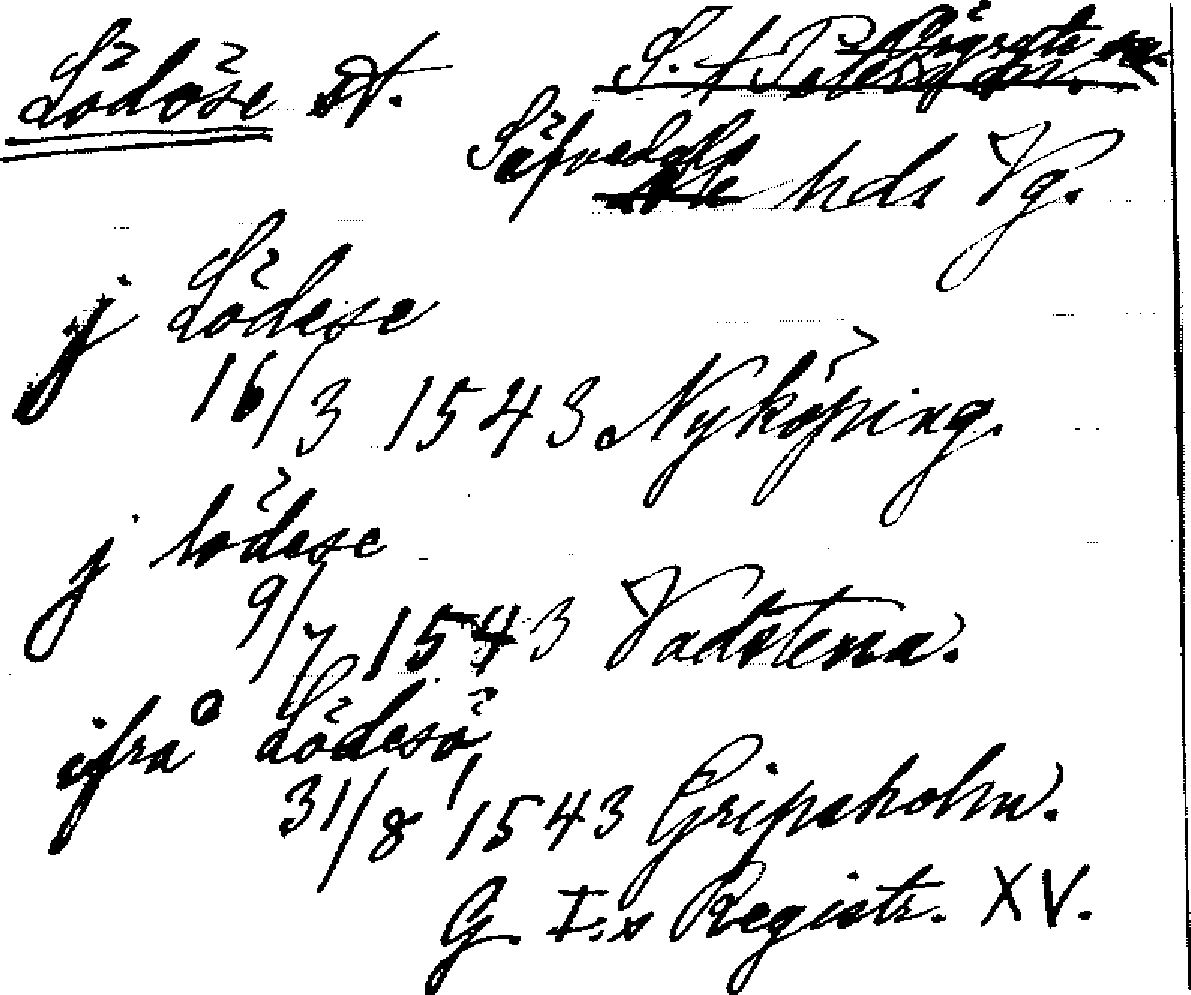 Lödöse st. S:t Peders sn.
Säfvedals hds Vg.
j Lödese
16/3 1543 Nyköping.
j lödese
9/7 1543 Vadstena.
ifrå Lödesö
31/8 1543 Gripsholm.
G. I:s Registr. XV.